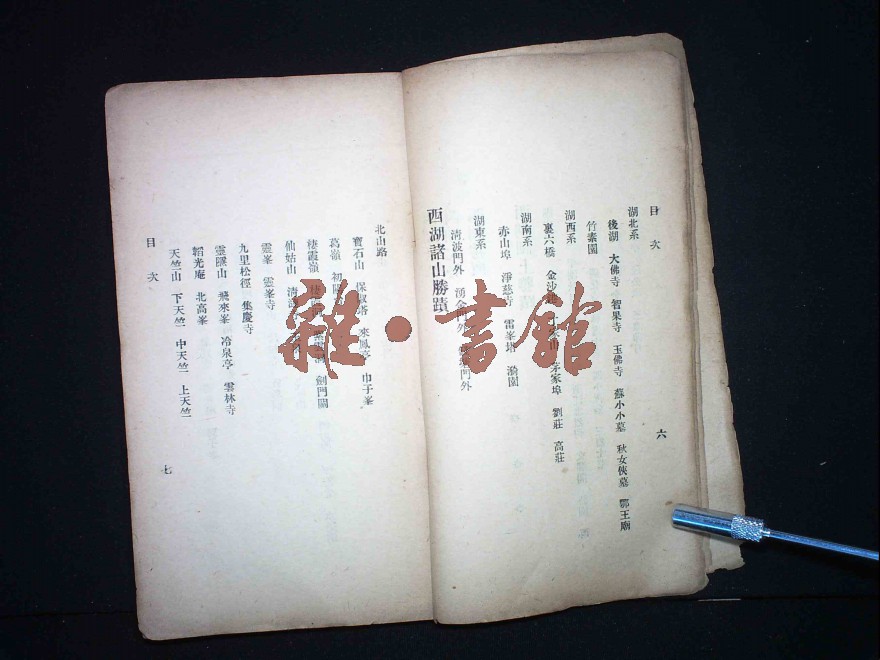 目次
湖北系
後湖 大佛寺 智果寺 玉佛寺 蘇小小墓 秋女俠墓 鄂王廟
竹素園
湖西系
裏六橋 金沙 茅家埠 劉莊 高莊
湖南系
赤山埠 淨慈寺 雷峯塔 漪園
湖東系
清波門外 湧金門外 門外
西湖諸山勝蹟
六
北山路
寶石山 保俶塔 來鳳亭 巾子峯
葛嶺 初陽
棲霞嶺 棲 劍門關
仙姑山 清
靈峯 靈峯寺
九里松徑 集慶寺
靈隱山 飛來峯 冷泉亭 雲林寺
韜光庵 北高峯
天竺山 下天竺 中天竺 上天竺
目次
七
雜·書館